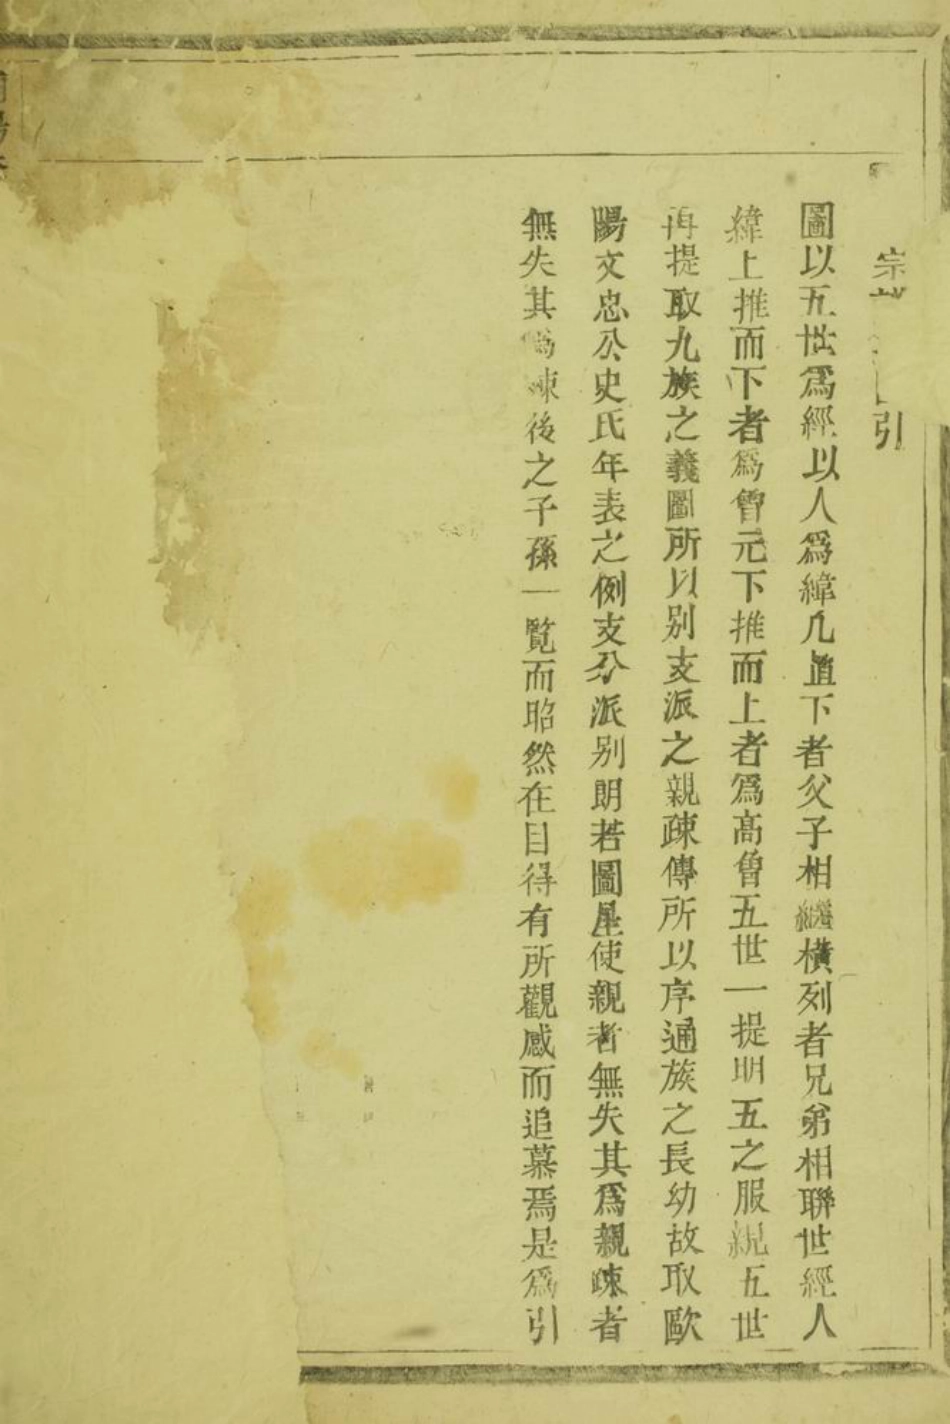 宗引
圖以五世爲經以人爲緯凢直下者父子相繼橫列者兄弟相聯世經人
緯上推而下者爲曾元下推而上者爲高曾五世一提明五之服親五世
再提取九族之義圖所以别支派之親疎傳所以序通族之長幼故取歐
陽文忠公史氏年表之例支分派别朗若圖星使親者無失其爲親疎者
無失其爲疎後之子孫一覽而昭然在目得有所觀感而追慕焉是爲引